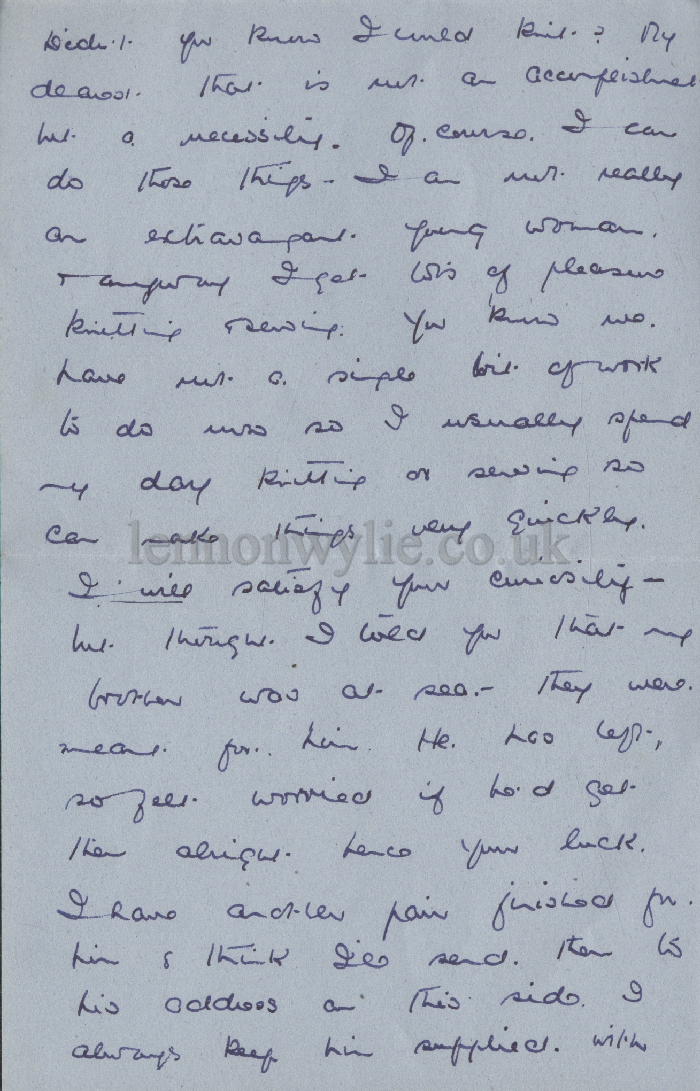 Didn't you know I could knit? My
dearest that is not an accomplishment
but a necessity. Of course I can
do those things - I am not really
an extravagant young woman.
& anyway I get lots of pleasure
knitting & sewing. You know we
have not a single bit of work
to do now so I usually spend
my day knitting or sewing so
can make things very quickly.
lennonwylie.co.uk
I will satisfy your curiosity -
but thought I told you that my
brother was at sea - they were
meant for him. He has left,
so felt worried if he'd get
them alright hence your luck.
I have another pair finished for
him & think I'll send them to
his address on this side. I
always keep him supplied with